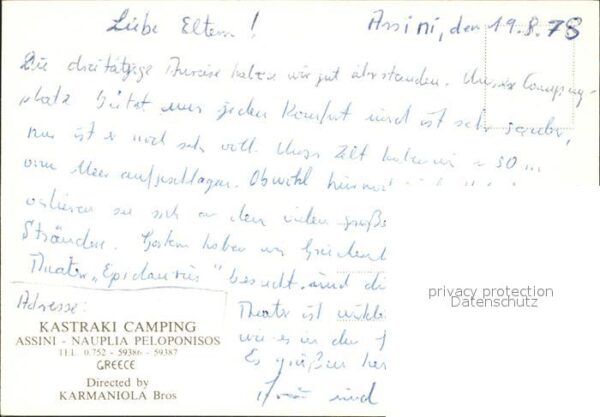 Liebe Eltern!
Assini, den 19.8.78
Die dreitägige Anreise haben wir gut überstanden. Unser Camping-
platz bietet uns jeden Komfort und ist sehr sauber,
nur ist er noch sehr voll. Unser Zelt haben wir ~ 50 m
vom Meer aufgeschlagen. Obwohl
verlieren sie sich an den vielen
Stränden. Gestern haben wir
Theater „Epidaurus“ besucht und
Theater ist
wie es in der
Es grüßen
und
Adresse:
KASTRAKI CAMPING
ASSINI - NAUPLIA PELOPONISOS
TEL. 0.752 - 59386 - 59387
GREECE
Directed by
KARMANIOLA Bros
privacy protection
Datenschutz